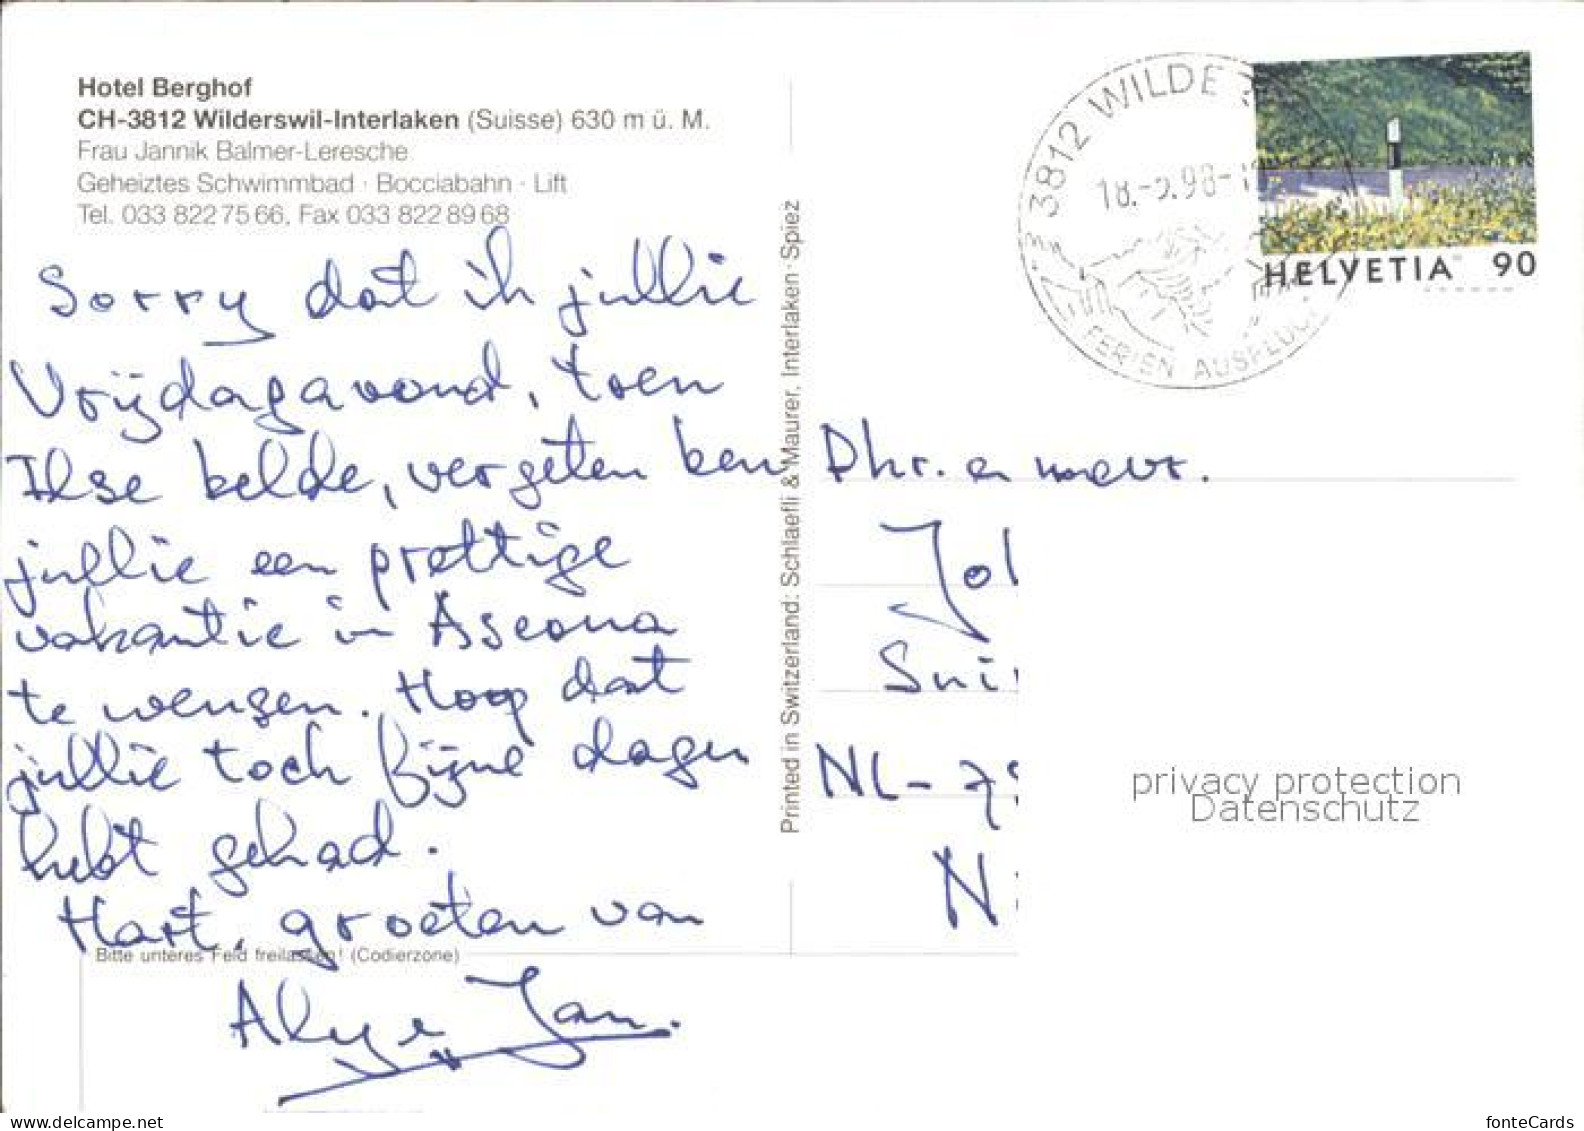 Hotel Berghof
CH-3812 Wilderswil-Interlaken (Suisse) 630 m ü. M.
Frau Jannik Balmer-Leresche
Geheiztes Schwimmbad · Bocciabahn · Lift
Tel. 033 822 75 66, Fax 033 822 89 68
Sorry dat ik jullie
Vrijdagavond, toen
Ilse belde, vergeten ben
jullie een prettige
vakantie in Ascona
te wensen. Hoop dat
jullie toch fijne dagen
hebt gehad.
Hart. groeten van
Bitte unteres Feld freilassen! (Codierzone)
Jan.
Printed in Switzerland: Schlaefli & Maurer, Interlaken · Spiez
3812 WILDE
18.-5.98-1
FERIEN AUSFLÜG
HELVETIA 90
Dhr. en mevr.
Jol
Sni
NL-79
N
privacy protection
Datenschutz
www.delcampe.net
fonteCards